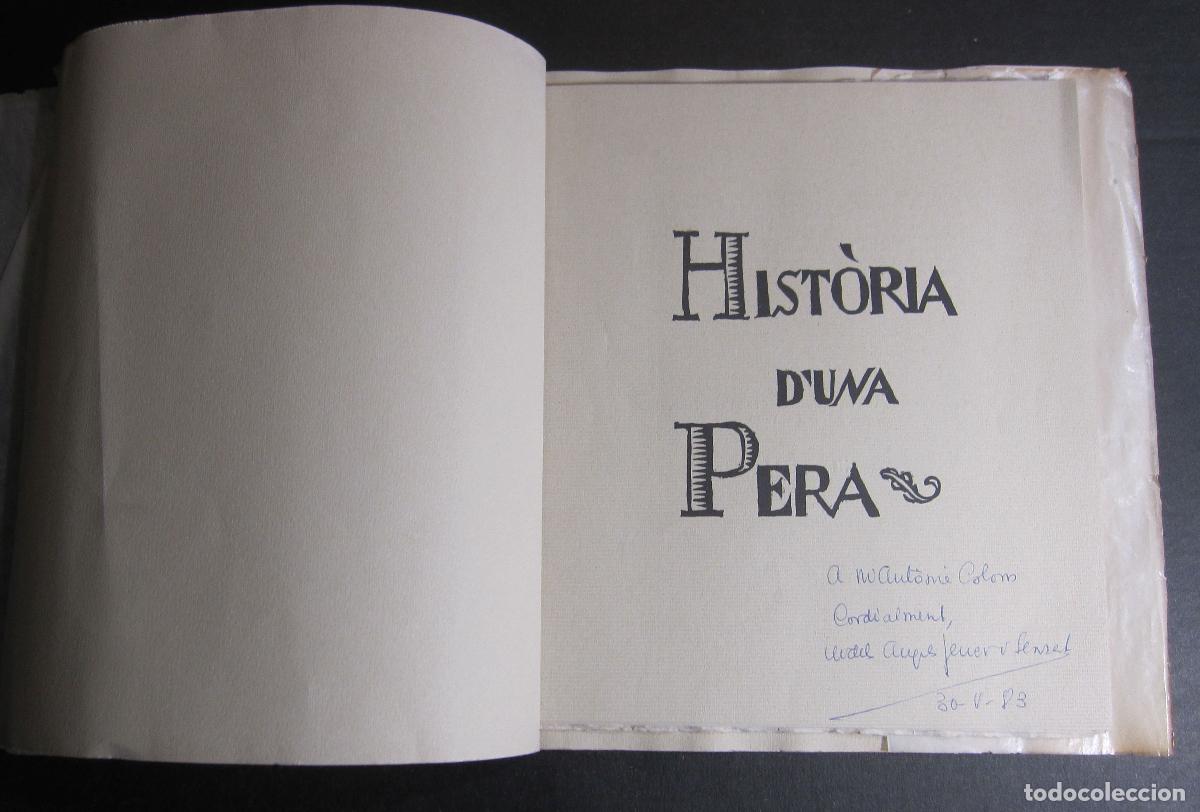 HISTÒRIA
D'UNA
PERA
A Mª Antònia Colom
Cordialment,
Mª dels Àngels Jener i Sensat
30-V-83
todocoleccion